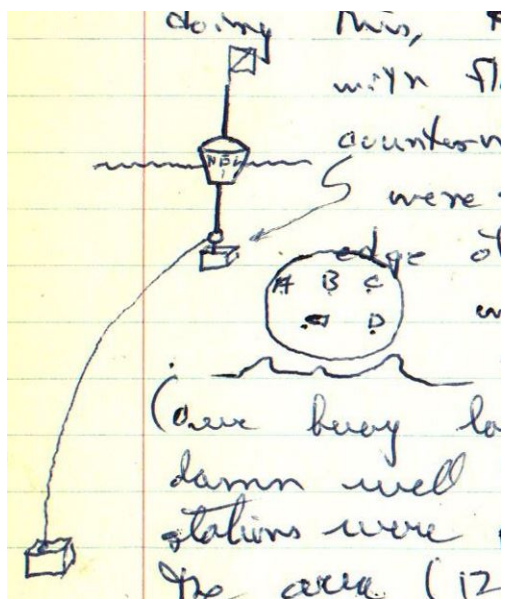 doing this,
with fl
counter-w
were
edge of
A B C
D
(our buoy lo
damn well
stations were
the area (12